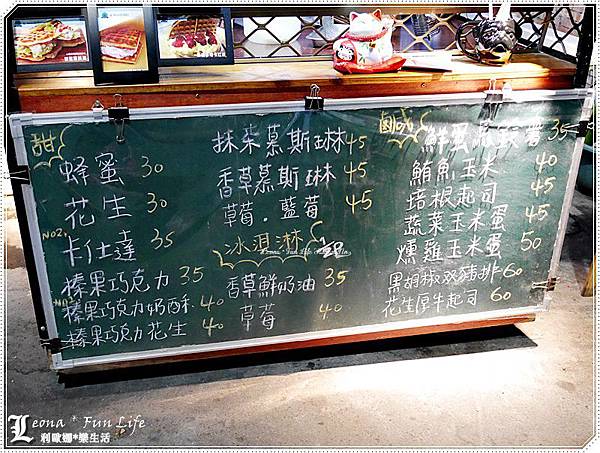 甜
蜂蜜 30
花生 30
NO2.
卡仕達 35
榛果巧克力 35
NO1.
榛果巧克力奶酥 40
榛果巧克力花生 40
抹茶慕斯琳 45
香草慕斯琳 45
草莓.藍莓 45
冰淇淋
香草鮮奶油 35
草莓 40
鹹
鮮蛋 薯 35
鮪魚玉米 40
培根起司 45
蔬菜玉米蛋 45
燻雞玉米蛋 50
黑胡椒双豬排 60
花生厚牛起司 60
Leona * Fun Life
利歐娜*樂生活